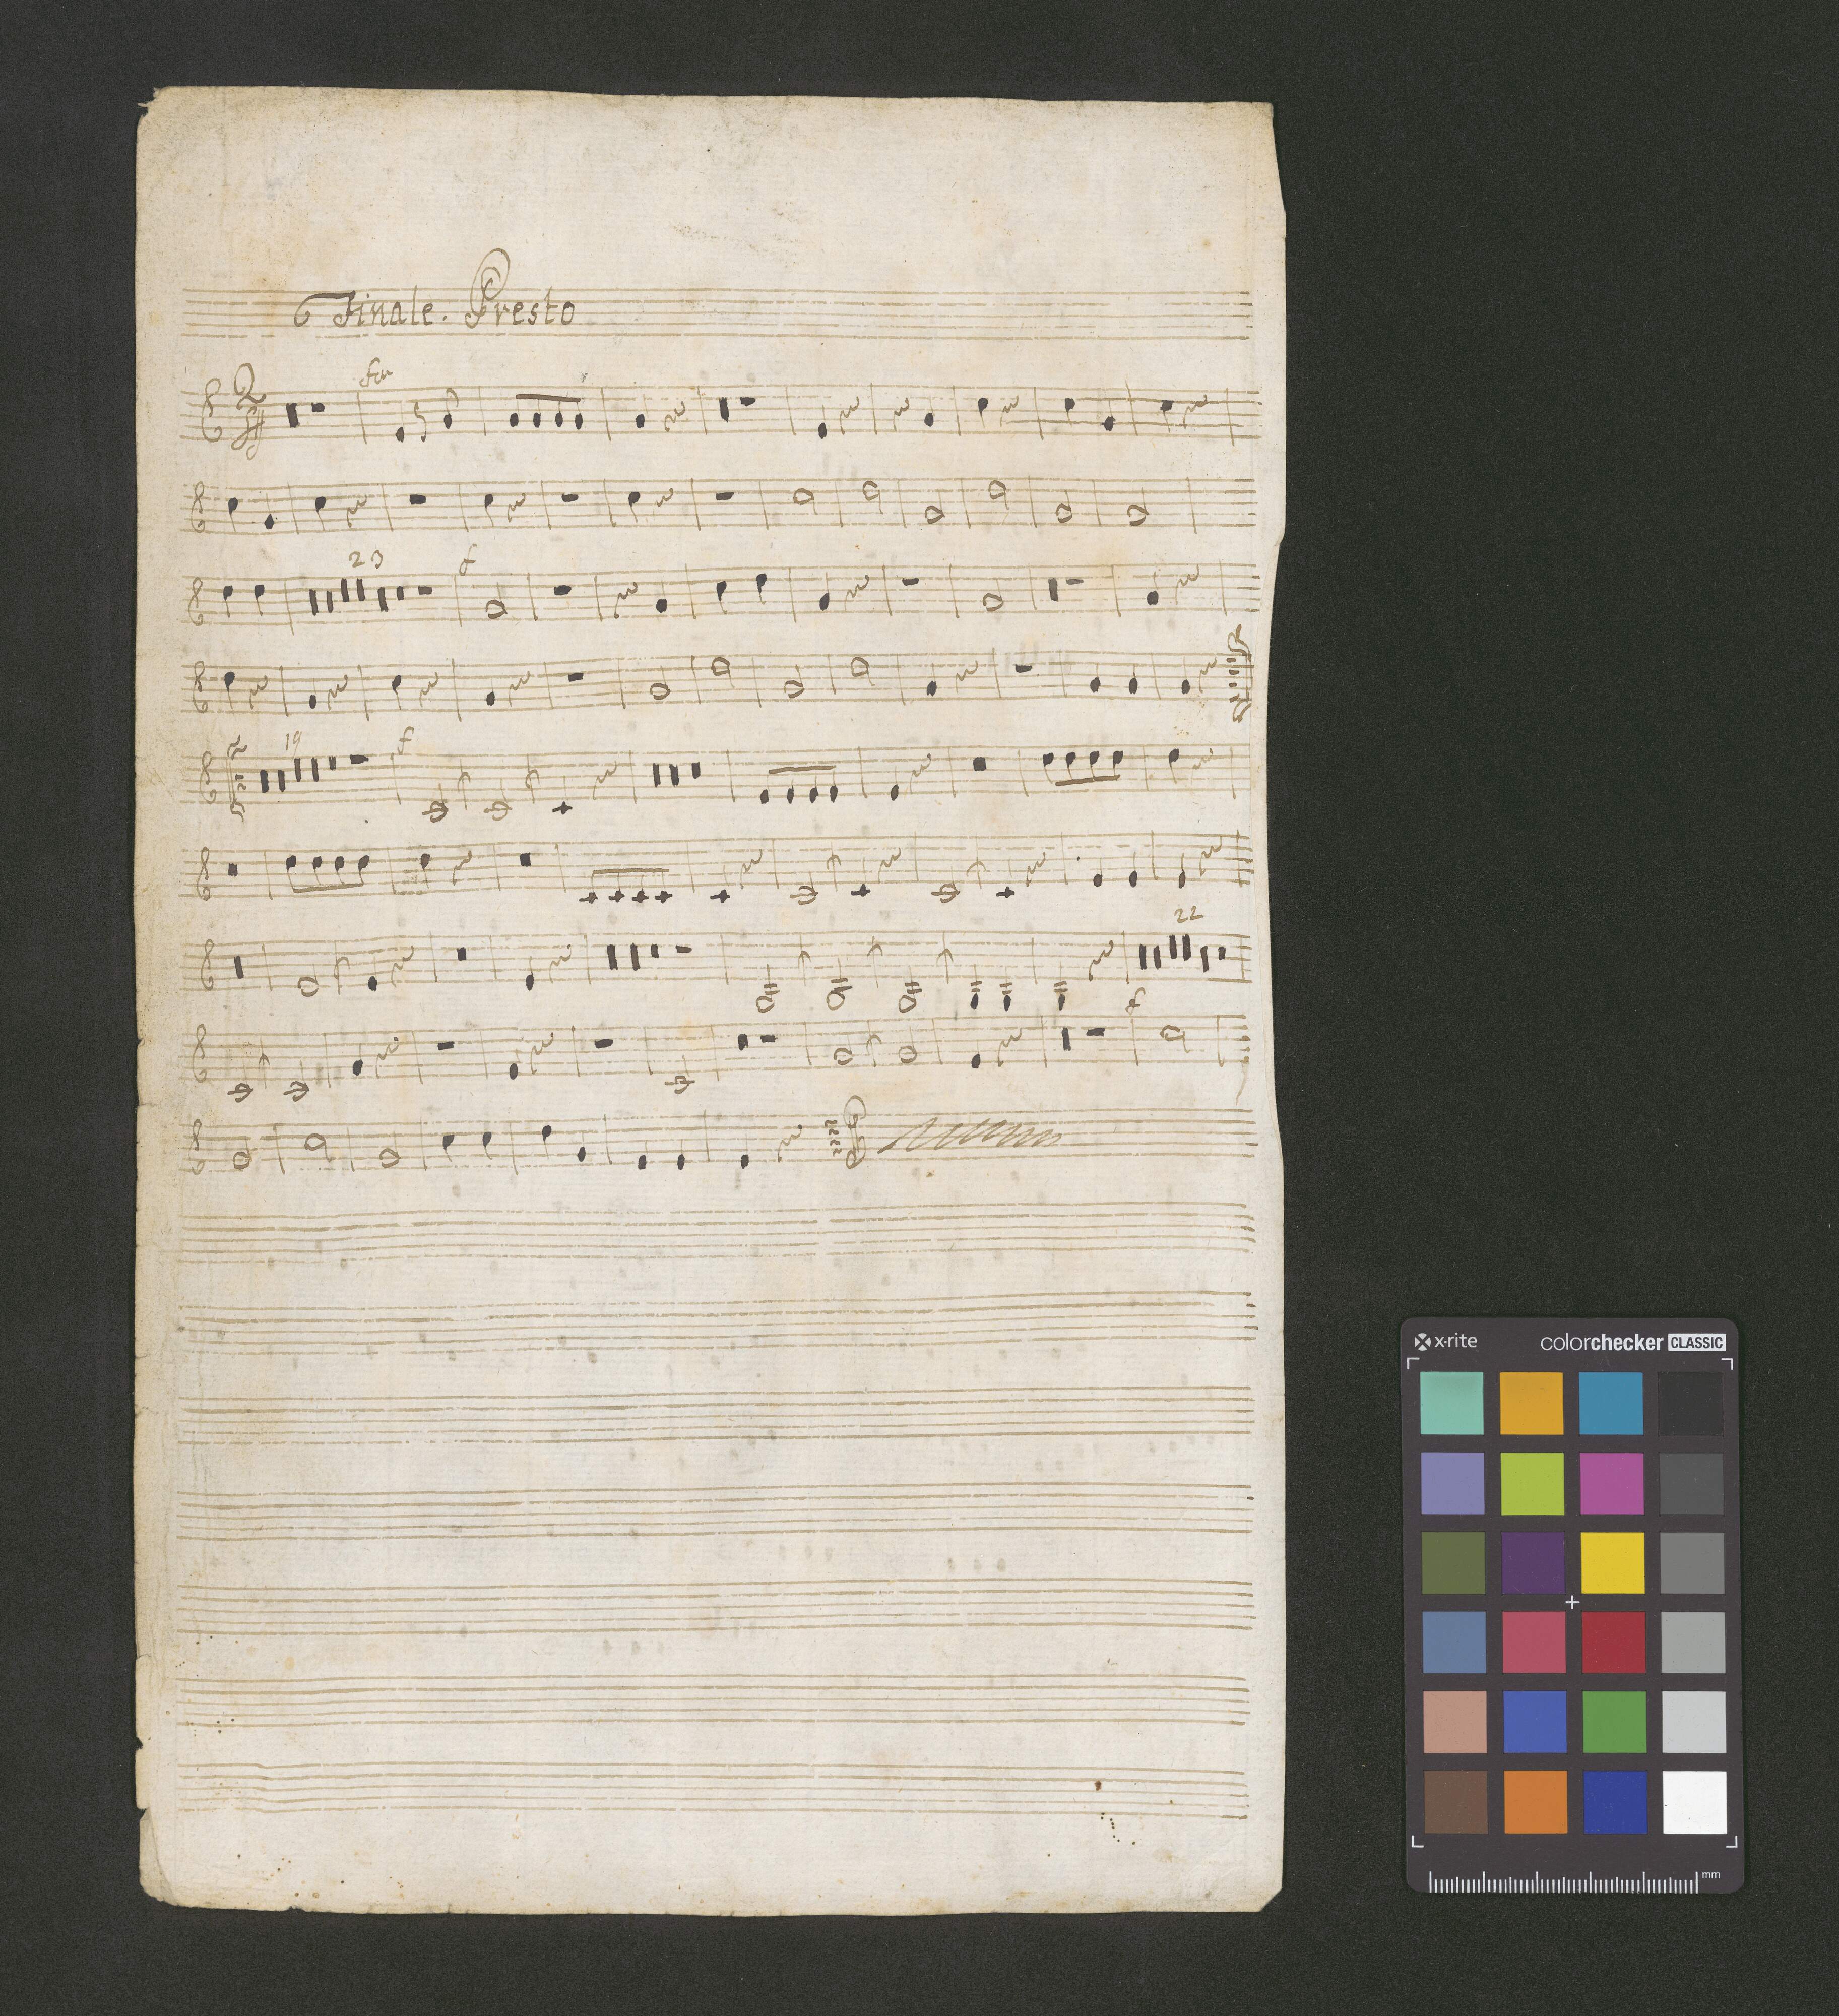 Finale. Presto
2
4
for
23
f
19
f
22
f
x-rite colorchecker CLASSIC
mm